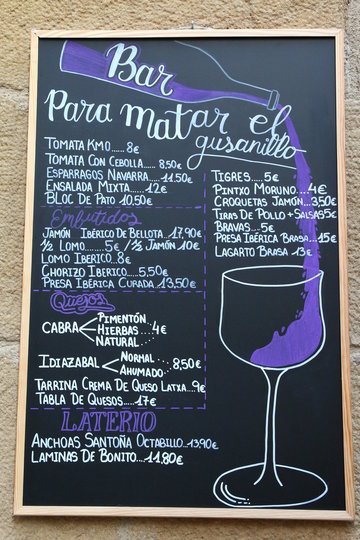 Bar
Para matar el
gusanillo
TOMATA KM0......8€
TOMATA CON CEBOLLA.....8,50€
ESPARRAGOS NAVARRA....11.50€
ENSALADA MIXTA....12€
BLOC DE PATO 10.50€
Embutidos
JAMÓN IBÉRICO DE BELLOTA..17,90€
½ LOMO.....5€ / ½ JAMÓN 10€
LOMO IBERICO..8€
CHORIZO IBERICO....5.50€
PRESA IBÉRICA CURADA 13,50€
Quejos
CABRA PIMENTÓN
HIERBAS ..4€
NATURAL
IDIAZABAL NORMAL
AHUMADO 8,50€
TARRINA CREMA DE QUESO LATXA...9€
TABLA DE QUESOS.....17€
LATERIO
ANCHOAS SANTOÑA OCTABILLO..13,90€
LAMINAS DE BONITO....11.80€
TIGRES....5€
PINTXO MORUNO....4€
CROQUETAS JAMÓN...3,50€
TIRAS DE POLLO+SALSAS 5€
BRAVAS...5€
PRESA IBÉRICA BRASA...15€
LAGARTO BRASA 13€